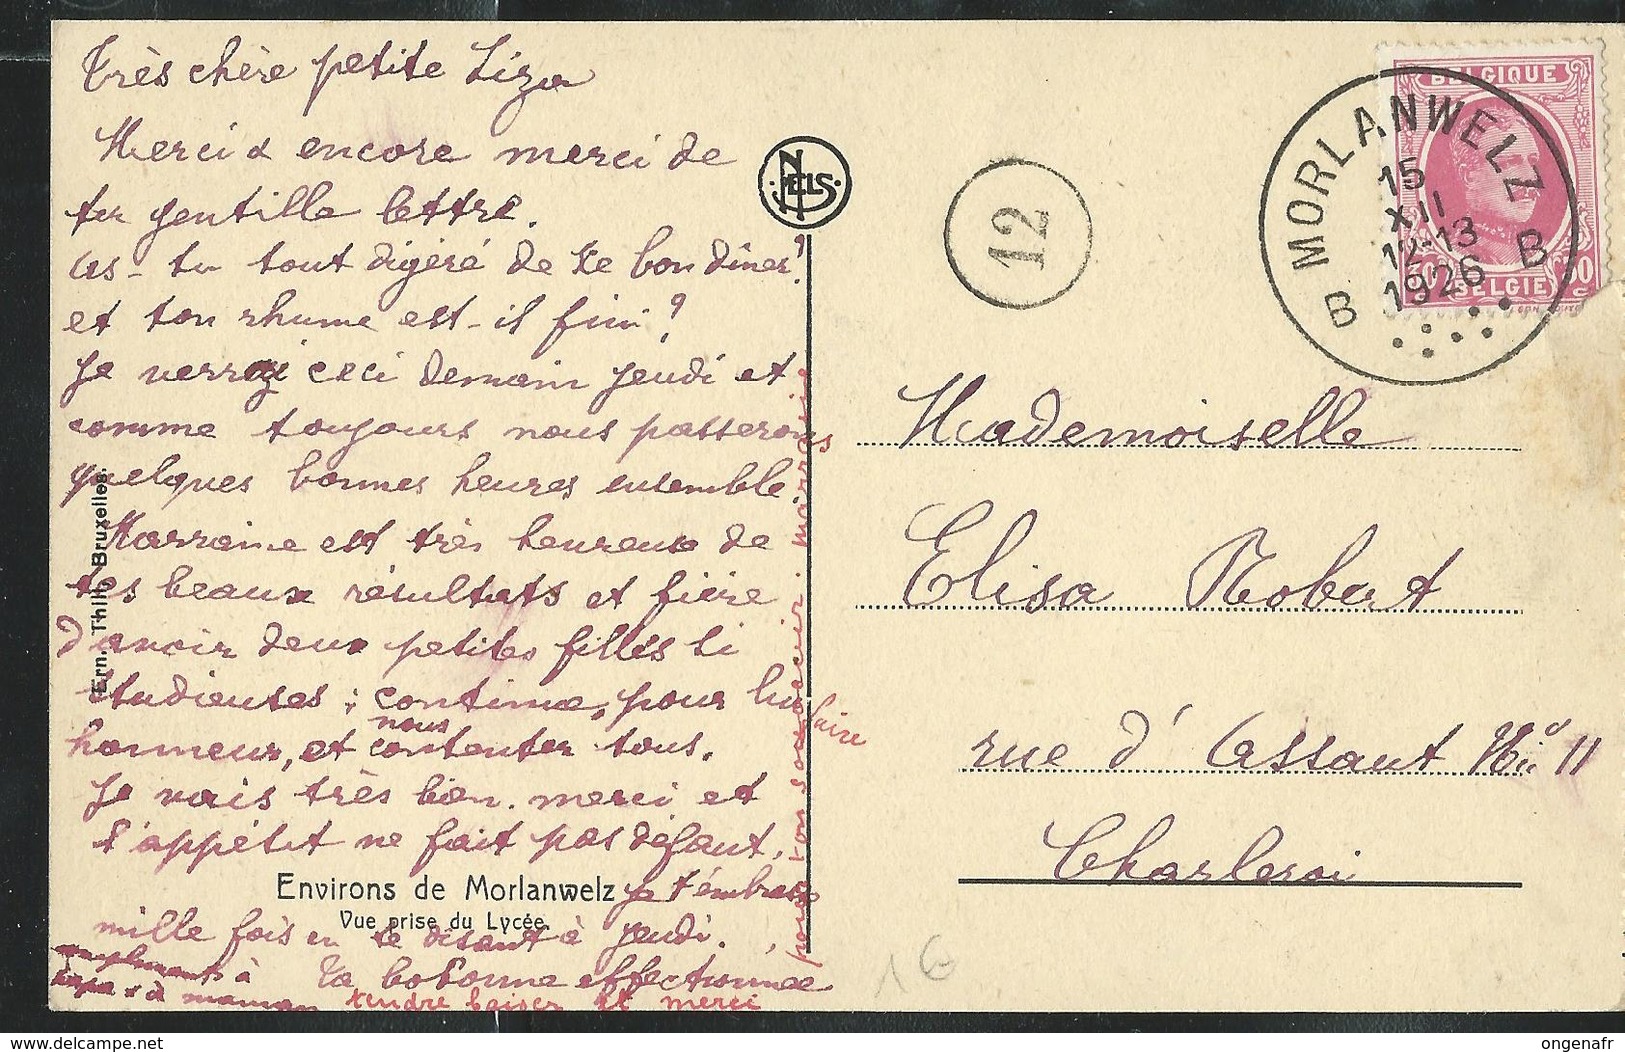 Très chère petite Liza
Merci & encore merci de
ta gentille lettre.
As-tu tout digéré de ce bon dîner?
et ton rhume est-il fini?
Je verrai ceci demain jeudi et
comme toujours nous passerons
quelques bonnes heures ensemble.
Marraine est très heureuse de
tes beaux résultats et fière
d'avoir deux petites filles si
studieuses; continue, pour lui faire
honneur, et nous contenter tous.
Je vais très bien. merci et
l'appétit ne fait pas défaut.
je t'embrasse
mille fois en te disant à jeudi.
Ta bobonne affectionnée
compliments à
papa & à maman
tendre baiser et merci
pour ton souvenir marraine
Ern. Thill, Bruxelles.
Environs de Morlanwelz
Vue prise du Lycée.
NELS
12
BELGIQUE
BELGIE
MORLANWELZ
15
XII
12-13
1926
B B
Mademoiselle
Elisa Robert
rue d'Assaut No 11
Charleroi
1€
ongenafr